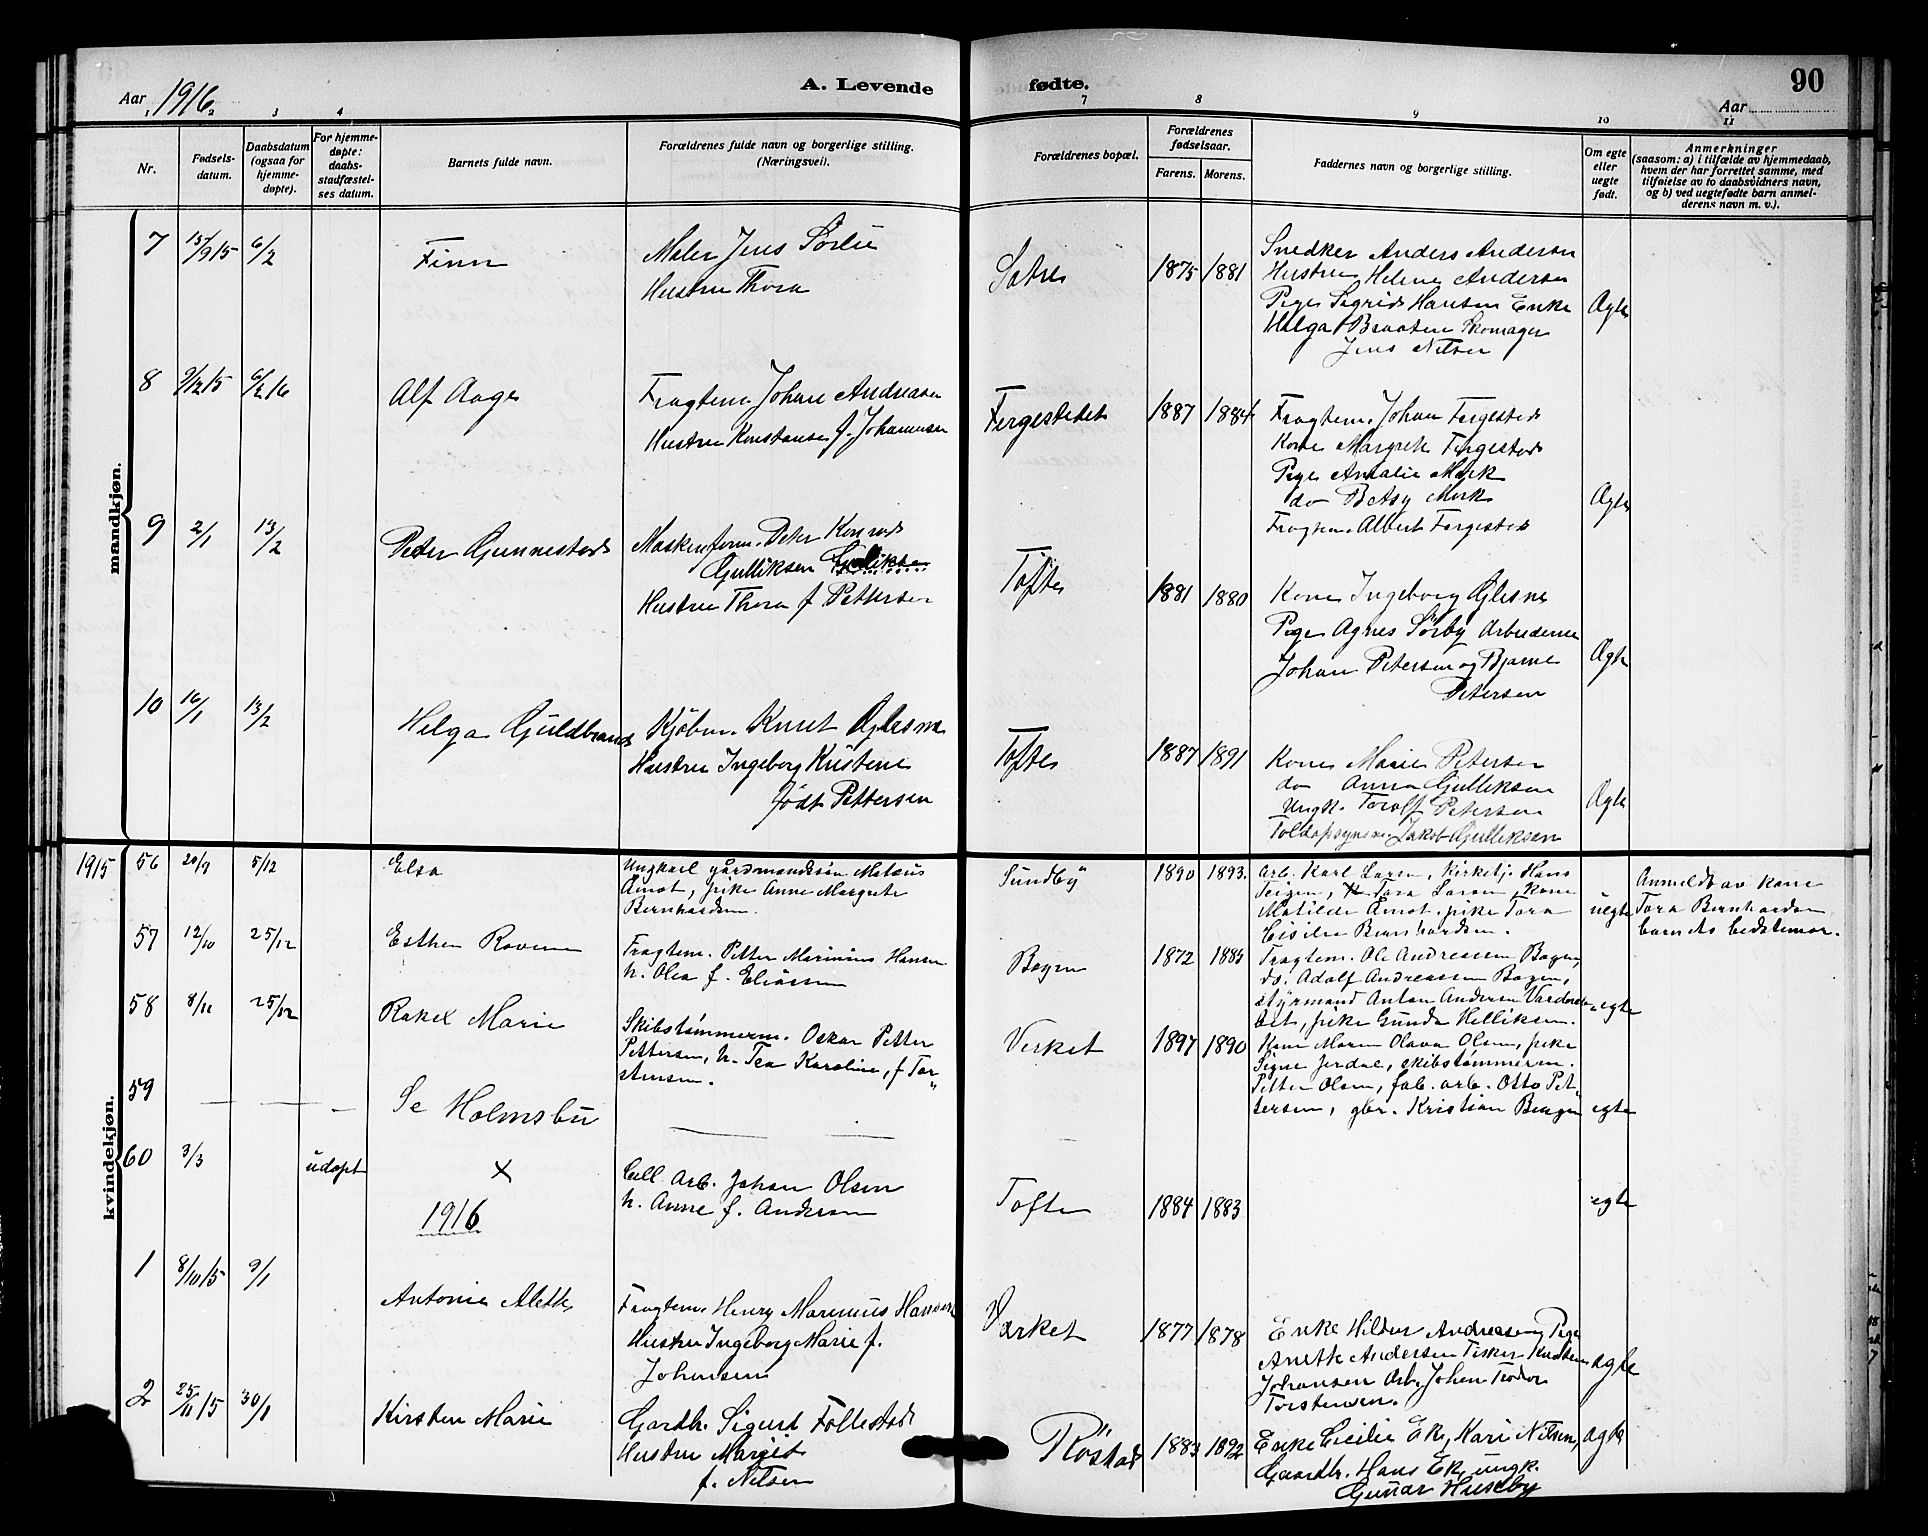 A. Levende fødte.
90
Aar 1916
Aar
1 2 3 4 7 8 9 10 11
Nr.
Fødsels-
datum.
Daabsdatum
(ogsaa for
hjemme-
døpte).
For hjemme-
døpte:
daabs-
stadfæstel-
ses datum.
Barnets fulde navn.
Forældrenes fulde navn og borgerlige stilling.
(Næringsvei).
Forældrenes bopæl.
Forældrenes
fødselsaar.
Farens. Morens.
Faddernes navn og borgerlige stilling.
Om egte
eller
uegte
født.
Anmerkninger
(saasom: a) i tilfælde av hjemmedaab,
hvem der har forrettet samme, med
tilføielse av to daabsvidners navn,
og b) ved uegtefødte barn anmel-
derens navn m. v.).
mandkjøn.
7 13/9 15 6/2 Finn
Maler Jens Sørlie
Hustru Thora
Satre 1875 1881
Snedker Anders Andersen
Hustru Helene Andersen
Pige Sigrid Hansen Enke
Helga Braaten Skomager
Jens Nilsen
Ægte
8 9/12 15 6/2 16 Alf Aage
Fragtem. Johan Andreasen
Hustru Konstanse f. Johannesen
Fergestedet 1887 1884
Fragtem. Johan Fergested
Kone Margrete Fergested
Pige Amalie Mørk
do Betsy Mørk
Fragtem. Albert Fergested
Ægte
9 2/1 13/2 Peter Gunnestad
Maskinform. Peter Konrad
Gulliksen
Hustru Thora f Pettersen
Tofte 1881 1880
Kone Ingeborg Oglesne
Pige Agnes Sørby Arbeiderne
Johan Petersen og Bjarne
Petersen
Ægte
10 16/1 13/2 Helge Guldbrand
Kjøbm. Knut Oglesne
Hustru Ingeborg Kristine
født Pettersen
Tofte 1887 1891
Kone Marie Petersen
do Anna Gulliksen
Ungk. Torolf Petersen
Toldopsynsm. Jakob Gulliksen
Ægte
kvindekjøn.
1915 56 20/9 5/12 Elsa
Ungkarl gårdmandssøn Mataus
Åmot, pike Anne Margrete
Bernhardsen.
Sundby 1890 1893.
Arb. Karl Larsen, Kirketj. Hans
Teigen, Tora Larsen, kone
Matilde Åmot, pike Tora
Cisilie Bernhardsen.
uegte
Anmeldt av kone
Tora Bernhardsen
barnets bedstemor.
57 12/10 25/12 Esther
Fragtem. Petter Marinius Hansen
h. Olea f. Eliassen
Bøgen 1872 1885
Fragtem. Ole Andreassen Bøgen,
do. Adolf Andreassen Bøgen,
styrmand Anton Andersen
pike Gunda Helliksen.
egte
58 8/11 25/12 Rakel Marie
Skibstømmerm. Oskar Petter
Pettersen, h. Tea Karoline, f Tor-
stensen.
Verket 1897 1890
Kone Maren Olava Olsen, pike
Signe Jerdal, skibstømmerm.
Petter Olsen, fab. arb. Otto Pet-
tersen, gbr. Kristian Bergen
egte
59 Se Holmsbu
60 3/3 udøpt x
Cell. Arb. Johan Olsen
h. Anne f. Andersen
Tofte 1884 1883
egte
1916
1 8/10 15 9/1 Antonie Alette
Fragtem. Henry Marinius Hansen
Hustru Ingeborg Marie f.
Johansen
Værket 1877 1878
Enke Hilda Andreasen, Pige
Anette Andersen Fisker Knut
Johansen Arb. Johan Teodor
Torstensen.
ægte
2 25/11 15 30/1 Kirsten Marie
Gardb. Sigurd Follestad
Hustru Margit
f. Nilsen
Røstad 1883 1892
Enke Cecilie Ek, Kari Nilsen,
Gaardbr. Hans Ek, ungk.
Gunnar Huseby
ægte